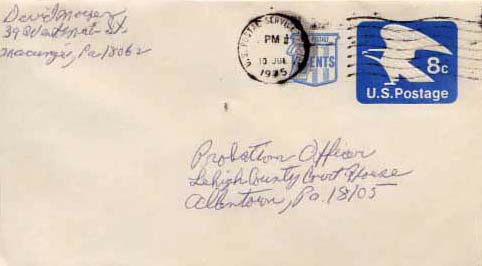 David Moser
39 Walnut St.
Macungie, Pa 18062
U.S. POSTAL SERVICE
PM
10 JUL
1975
CENTS
8c
U.S. Postage
Probation Officer
Lehigh County Court House
Allentown, Pa. 18105